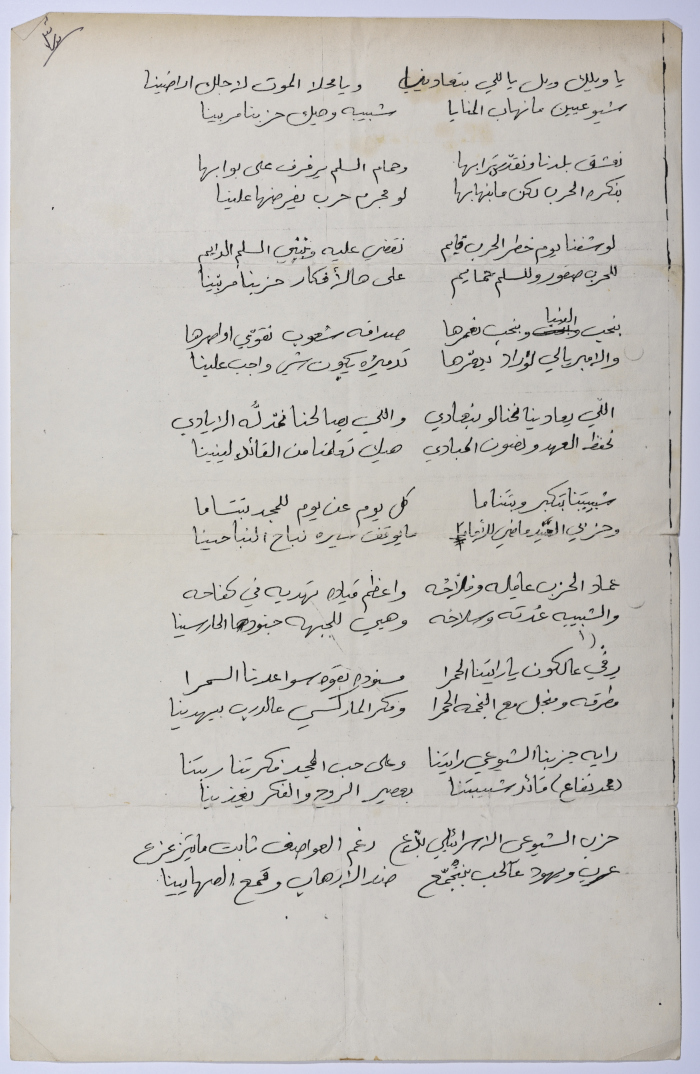 يا ويلك ويل ياللي بتعادينا ويا محلا الموت لاجلك اراضينا
شيوعيين ما نهاب المنايا شبيبه وهيك حزبنا مربينا
نعشق بلدنا ونقدّس ترابها وحمام السلم يرفرف على بوابها
بنكره الحرب لكن ما بنهابها لو مجرم حرب يفرضها علينا
لو شفنا يوم خطر الحرب قايم نقضي عليه ونبني السلم الدايم
للحرب صقور وللسلم حمايم على هالأفكار حزبنا مربّينا
بنحب الدنيا وبنحب نعمرها صداقه شعوب نقوّي اواصرها
والامبريالي لو راد يدمّرها تدميره يكون شي واجب علينا
اللّي يعادينا نحنا لو بنعادي واللي يصالحنا نمدّلُه الايادي
نحفظ العهد ونصون المبادي هيك تعلمنا من القائد لينينا
شبيبتنا بتكبر وبتتناما كل يوم عن يوم للمجد تتساما
وحزبي ماضي مابوقف سيره نباح النباحينا
عماد الحزب عامله وفلّاحه واعظم قياده تهديه في كفاحه
والشبيبه عُدته وسلاحه وهيي للجبهه جنودها الحارسينا
رفّي عالكون يا رايتنا الحمرا مسنوده بقوه سواعدنا السمرا
مطرقه ومنجل مع النجمه الحمرا وفكر الماركسي عالدرب بيهدينا
رايه حزبنا الشيوعي رايتنا وعلى حب المجد فكرتنا ربتنا
(محمد نفاع) قائد شبيبتنا بعصير الروح والفكر يغذينا
حزب الشيوعي الاسرائيلي رغم العواصف ثابت ما يتزعزع
عرب ويهود عالحب بنتجمّع ضد الارهاب وقمع الصهايينا